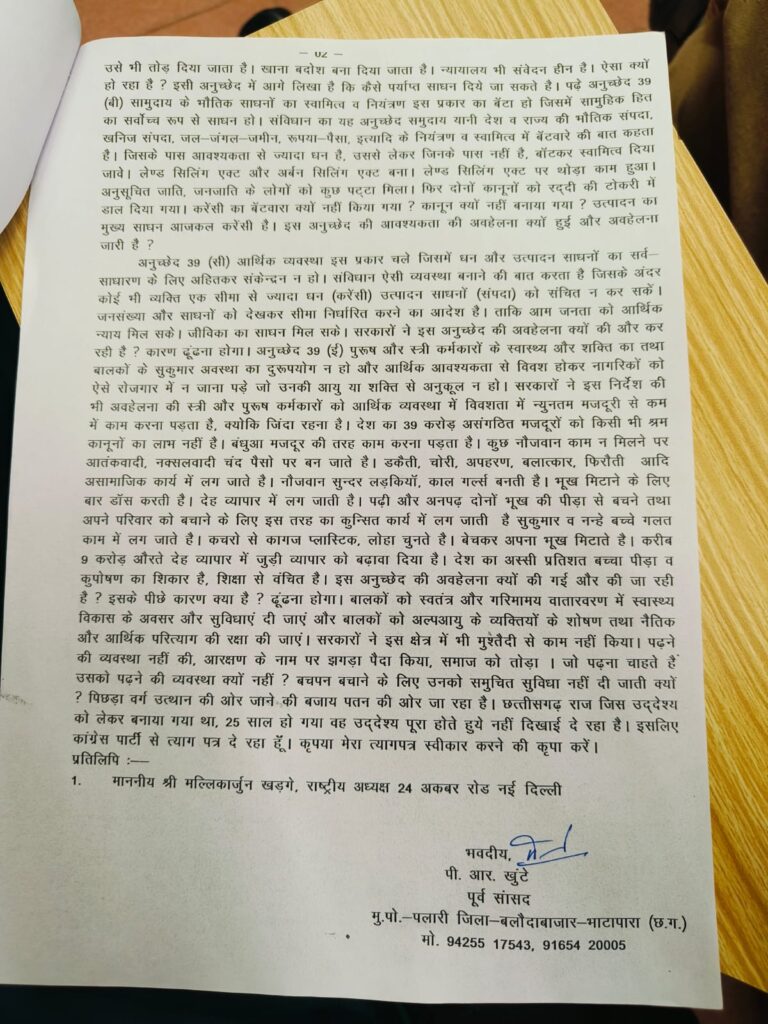 – 02 –
उसे भी तोड़ दिया जाता है। खाना बदोश बना दिया जाता है। न्यायालय भी संवेदन हीन है। ऐसा क्यों
हो रहा है ? इसी अनुच्छेद में आगे लिखा है कि कैसे पर्याप्त साधन दिये जा सकते है। पढ़े अनुच्छेद 39
(बी) सामुदाय के भौतिक साधनों का स्वामित्व व नियंत्रण इस प्रकार का बेंटा हो जिसमें सामुहिक हित
का सर्वोच्च रूप से साधन हो। संविधान का यह अनुच्छेद समुदाय यानी देश व राज्य की भौतिक संपदा,
खनिज संपदा, जल–जंगल–जमीन, रूपया–पैसा, इत्यादि के नियंत्रण व स्वामित्व में बेंटवारे की बात कहता
है। जिसके पास आवश्यकता से ज्यादा धन है, उससे लेकर जिनके पास नहीं है, बॉटकर स्वामित्व दिया
जावे। लेण्ड सिलिंग एक्ट और अर्बन सिलिंग एक्ट बना। लेण्ड सिलिंग एक्ट पर थोड़ा काम हुआ।
अनुसूचित जाति, जनजाति के लोगों को कुछ पट्टा मिला। फिर दोनों कानूनों को रद्दी की टोकरी में
डाल दिया गया। करेंसी का बेंटवारा क्यों नहीं किया गया ? कानून क्यों नहीं बनाया गया ? उत्पादन का
मुख्य साधन आजकल करेंसी है। इस अनुच्छेद की आवश्यकता की अवहेलना क्यों हुई और अवहेलना
जारी है ?
अनुच्छेद 39 (सी) आर्थिक व्यवस्था इस प्रकार चले जिसमें धन और उत्पादन साधनों का सर्व–
साधारण के लिए अहितकर संकेन्दन न हो। संविधान ऐसी व्यवस्था बनाने की बात करता है जिसके अंदर
कोई भी व्यक्ति एक सीमा से ज्यादा धन (करेंसी) उत्पादन साधनों (संपदा) को संचित न कर सकें।
जनसंख्या और साधनों को देखकर सीमा निर्धारित करने का आदेश है। ताकि आम जनता को आर्थिक
न्याय मिल सके। जीविका का साधन मिल सके। सरकारों ने इस अनुच्छेद की अवहेलना क्यों की और कर
रही है ? कारण ढूंढना होगा। अनुच्छेद 39 (ई) पुरूष और स्त्री कर्मकारों के स्वास्थ्य और शक्ति का तथा
बालकों के सुकुमार अवस्था का दुरूपयोग न हो और आर्थिक आवश्यकता से विवश होकर नागरिकों को
ऐसे रोजगार में न जाना पड़े जो उनकी आयु या शक्ति से अनुकूल न हो। सरकारों ने इस निर्देश की
भी अवहेलना की स्त्री और पुरूष कर्मकारों को आर्थिक व्यवस्था में विवशता में न्युनतम मजदूरी से कम
में काम करना पड़ता है, क्योकि जिंदा रहना है। देश का 39 करोड़ असंगठित मजदूरों को किसी भी श्रम
कानूनों का लाभ नहीं है। बंधुआ मजदूर की तरह काम करना पड़ता है। कुछ नौजवान काम न मिलने पर
आतंकवादी, नक्सलवादी चंद पैसो पर बन जाते है। डकैती, चोरी, अपहरण, बलात्कार, फिरौती आदि
असामाजिक कार्य में लग जाते है। नौजवान सुन्दर लड़कियॉ, काल गर्ल्स बनती है। भूख मिटाने के लिए
बार डॉस करती है। देह व्यापार में लग जाती है। पढ़ी और अनपढ़ दोनों भूख की पीड़ा से बचने तथा
अपने परिवार को बचाने के लिए इस तरह का कुन्सित कार्य में लग जाती है सुकुमार व नन्हे बच्चे गलत
काम में लग जाते है। कचरो से कागज प्लास्टिक, लोहा चुनते है। बेचकर अपना भूख मिटाते है। करीब
9 करोड़ औरते देह व्यापार में जुड़ी व्यापार को बढ़ावा दिया है। देश का अस्सी प्रतिशत बच्चा पीड़ा व
कुपोषण का शिकार है, शिक्षा से वंचित है। इस अनुच्छेद की अवहेलना क्यों की गई और की जा रही
है ? इसके पीछे कारण क्या है ? ढूंढना होगा। बालकों को स्वतंत्र और गरिमामय वातारवरण में स्वास्थ्य
विकास के अवसर और सुविधाएं दी जाएं और बालकों को अल्पआयु के व्यक्तियों के शोषण तथा नैतिक
और आर्थिक परित्याग की रक्षा की जाएं। सरकारों ने इस क्षेत्र में भी मुश्तैदी से काम नहीं किया। पढ़ने
की व्यवस्था नहीं की, आरक्षण के नाम पर झगड़ा पैदा किया, समाज को तोड़ा । जो पढ़ना चाहते हैं
उसको पढ़ने की व्यवस्था क्यों नहीं ? बचपन बचाने के लिए उनको समुचित सुविधा नहीं दी जाती क्यों
? पिछड़ा वर्ग उत्थान की ओर जाने की बजाय पतन की ओर जा रहा है। छत्तीसगढ़ राज जिस उद्देश्य
को लेकर बनाया गया था, 25 साल हो गया वह उद्देश्य पूरा होते हुये नहीं दिखाई दे रहा है। इसलिए
कांग्रेस पार्टी से त्याग पत्र दे रहा हूँ। कृपया मेरा त्यागपत्र स्वीकार करने की कृपा करें।
प्रतिलिपि :–
1. माननीय श्री मल्लिकार्जुन खड़गे, राष्ट्रीय अध्यक्ष 24 अकबर रोड नई दिल्ली
भवदीय,
पी. आर. खुंटे
पूर्व सांसद
मु.पो.–पलारी जिला–बलौदाबाजार–भाटापारा (छ.ग.)
मो. 94255 17543, 91654 20005